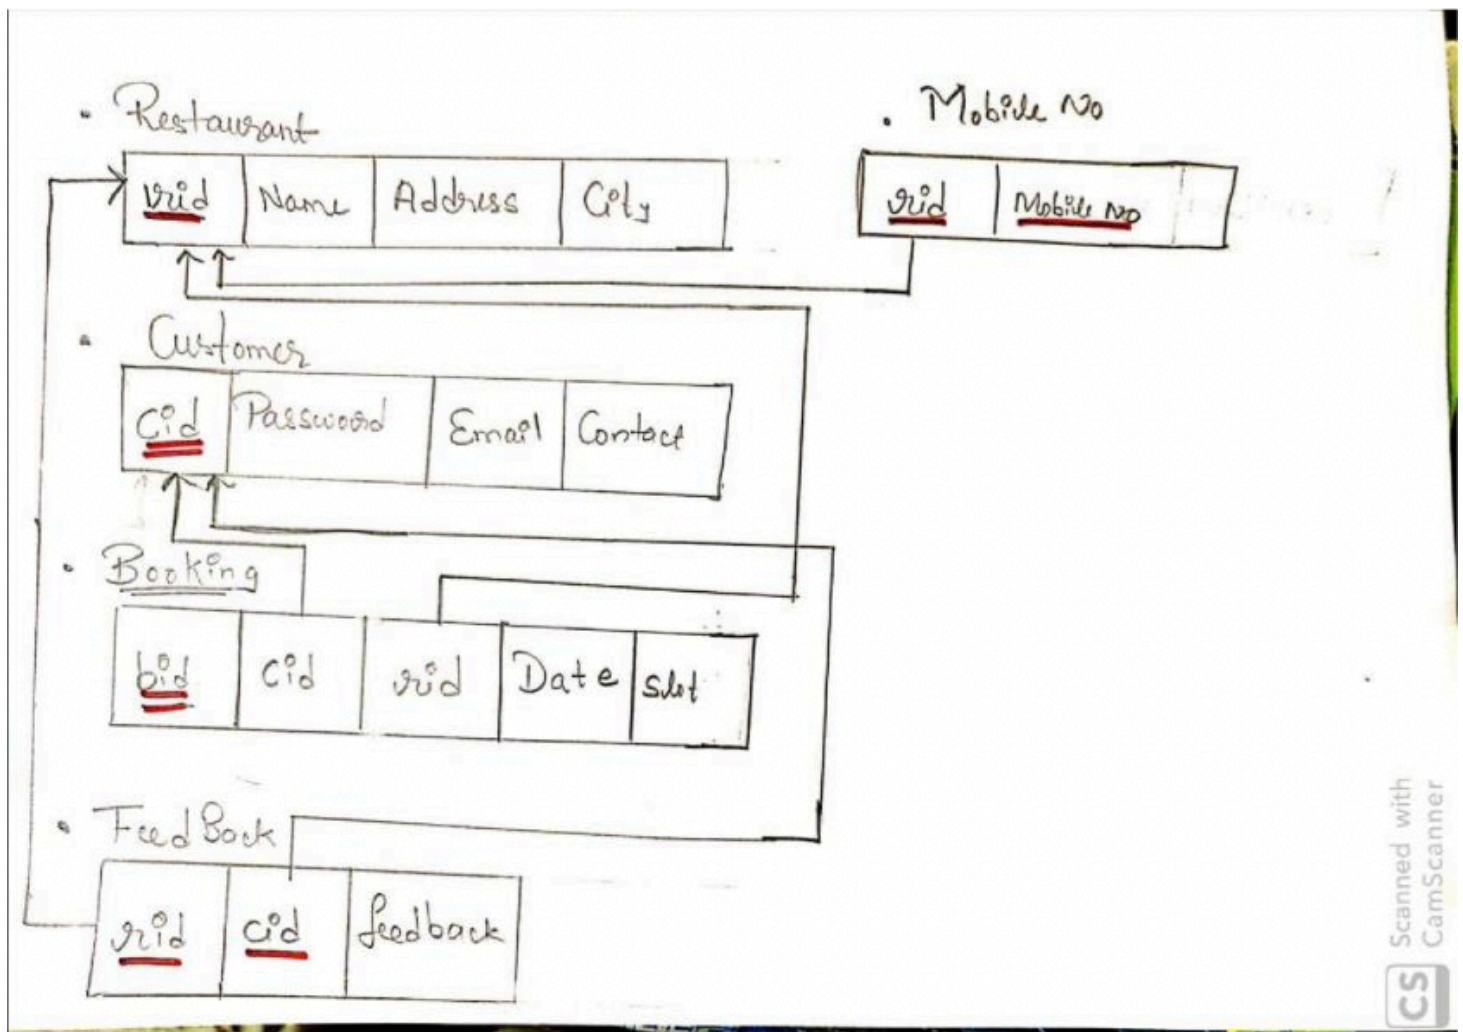 • Restaurant
rid Name Address City
• Mobile No
rid Mobile No
• Customer
Cid Password Email Contact
• Booking
bid Cid rid Date Slot
• FeedBack
rid cid feedback
Scanned with
CamScanner
CS